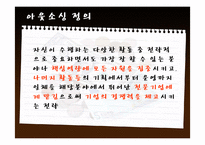 아웃소싱 정의
자신이 수행하는 다양한 활동 중 전략적
으로 중요하면서도 가장 잘 할 수 있는 분
야나 핵심역량에 모든 자원을 집중시키고,
나머지 활동들의 기획에서부터 운영까지
일체를 해당분야에서 뛰어난 전문기업에
게 맡김으로써 기업의 경쟁력을 제고시키
는 전략